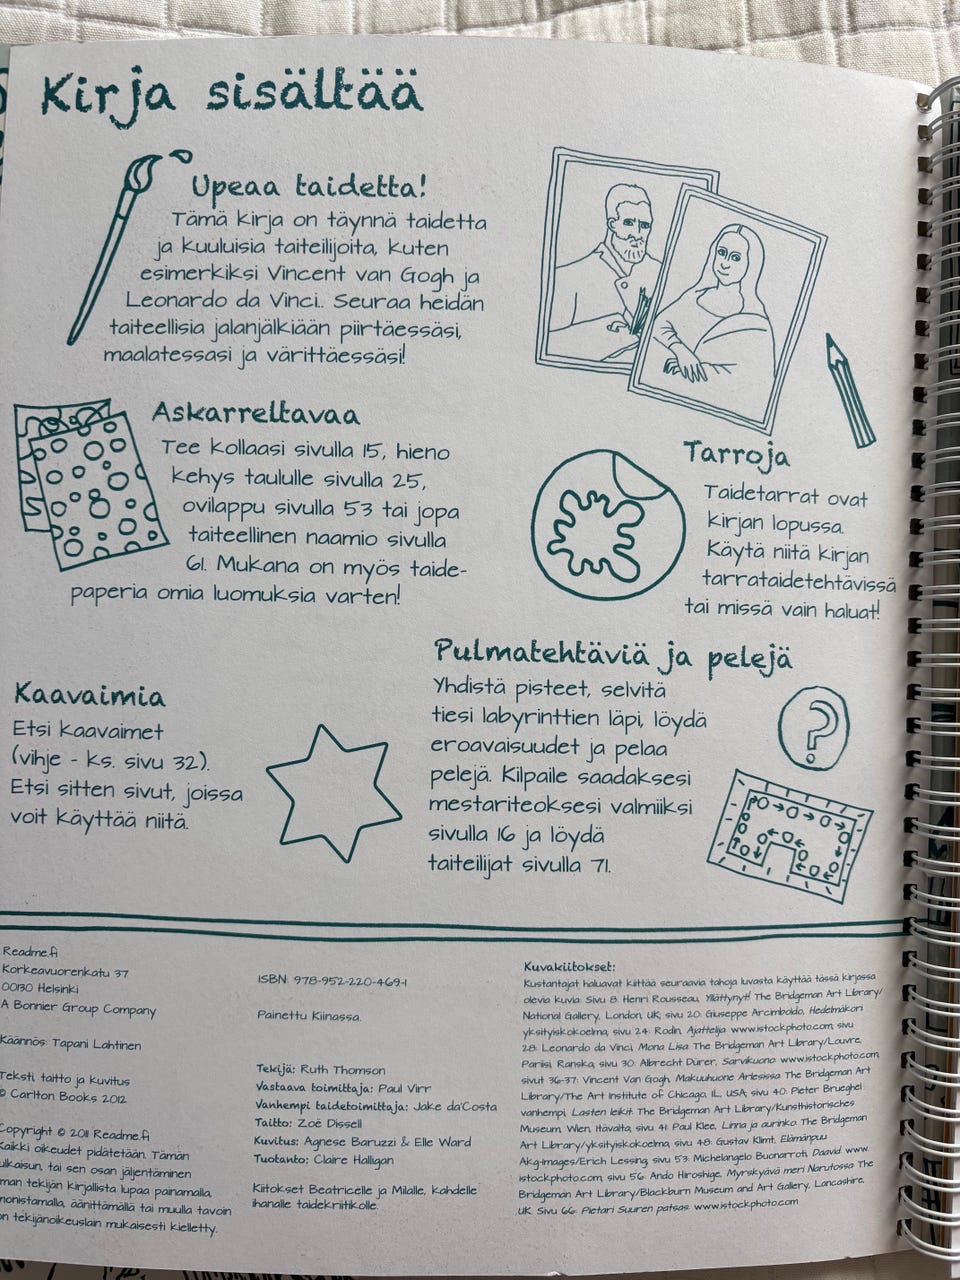 Kirja sisältää
Upeaa taidetta!
Tämä kirja on täynnä taidetta
ja kuuluisia taiteilijoita, kuten
esimerkiksi Vincent van Gogh ja
Leonardo da Vinci.. Seuraa heidän
taiteellisia jalanjälkiään piirtäessäsi,
maalatessasi ja värittäessäsi!
Askarreltavaa
Tee kollaasi sivulla 15, hieno
kehys taululle sivulla 25,
ovilappu sivulla 53 tai jopa
taiteellinen naamio sivulla
61. Mukana on myös taide-
paperia omia luomuksia varten!
Tarroja
Taidetarrat ovat
kirjan lopussa.
Käytä niitä kirjan
tarrataidetehtävissä
tai missä vain haluat!
Kaavaimia
Etsi kaavaimet
(vihje - ks. sivu 32).
Etsi sitten sivut, joissa
voit käyttää niitä.
Pulmatehtäviä ja pelejä
Yhdistä pisteet, selvitä
tiesi labyrinttien läpi, löydä
eroavaisuudet ja pelaa
pelejä. Kilpaile saadaksesi
mestariteoksesi valmiiksi
sivulla 16 ja löydä
taiteilijat sivulla 71.
?
Readme.fi
Korkeavuorenkatu 37
00130 Helsinki
A Bonnier Group Company
Käännös: Tapani Lahtinen
Teksti, taitto ja kuvitus
© Carlton Books 2012
Copyright © 2011 Readme.fi
Kaikki oikeudet pidätetään. Tämän
julkaisun, tai sen osan jäljentäminen
ilman tekijän kirjallista lupaa painamalla,
monistamalla, äänittämällä tai muulla tavoin
on tekijänoikeuslain mukaisesti kielletty.
ISBN: 978-952-220-469-1
Painettu Kiinassa.
Tekijä: Ruth Thomson
Vastaava toimittaja: Paul Virr
Vanhempi taidetoimittaja: Jake da'Costa
Taitto: Zoë Dissell
Kuvitus: Agnese Baruzzi & Elle Ward
Tuotanto: Claire Halligan
Kiitokset Beatricelle ja Milalle, kahdelle
ihanalle taidekriitikolle.
Kuvakiitokset:
Kustantajat haluavat kiittää seuraavia tahoja luvasta käyttää tässä kirjassa
olevia kuvia: Sivu 8: Henri Rousseau, Yllättynyt! The Bridgeman Art Library/
National Gallery, London, UK; sivu 20: Giuseppe Arcimboldo, Hedelmäkori
yksityiskokoelma, sivu 24: Rodin, Ajattelija www.istockphoto.com, sivu
28: Leonardo da Vinci, Mona Lisa The Bridgeman Art Library/Louvre,
Pariisi, Ranska, sivu 30: Albrecht Dürer, Sarvikuono: www.istockphoto.com,
sivut 36-37: Vincent Van Gogh, Makuuhuone Arlesissa The Bridgeman Art
Library/The Art Institute of Chicago, IL, USA, sivu 40: Pieter Brueghel
vanhempi, Lasten leikit: The Bridgeman Art Library/Kunsthistorisches
Museum, Wien, Itävalta, sivu 41: Paul Klee, Linna ja aurinko: The Bridgeman
Art Library/yksityiskokoelma, sivu 48: Gustav Klimt, Elämänpuu
Akg-images/Erich Lessing, sivu 53: Michelangelo Buonarroti, Daavid www.
istockphoto.com, sivu 56: Ando Hiroshige, Myrskyävä meri Narutossa The
Bridgeman Art Library/Blackburn Museum and Art Gallery, Lancashire,
UK. Sivu 66: Pietari Suuren patsas: www.istockphoto.com